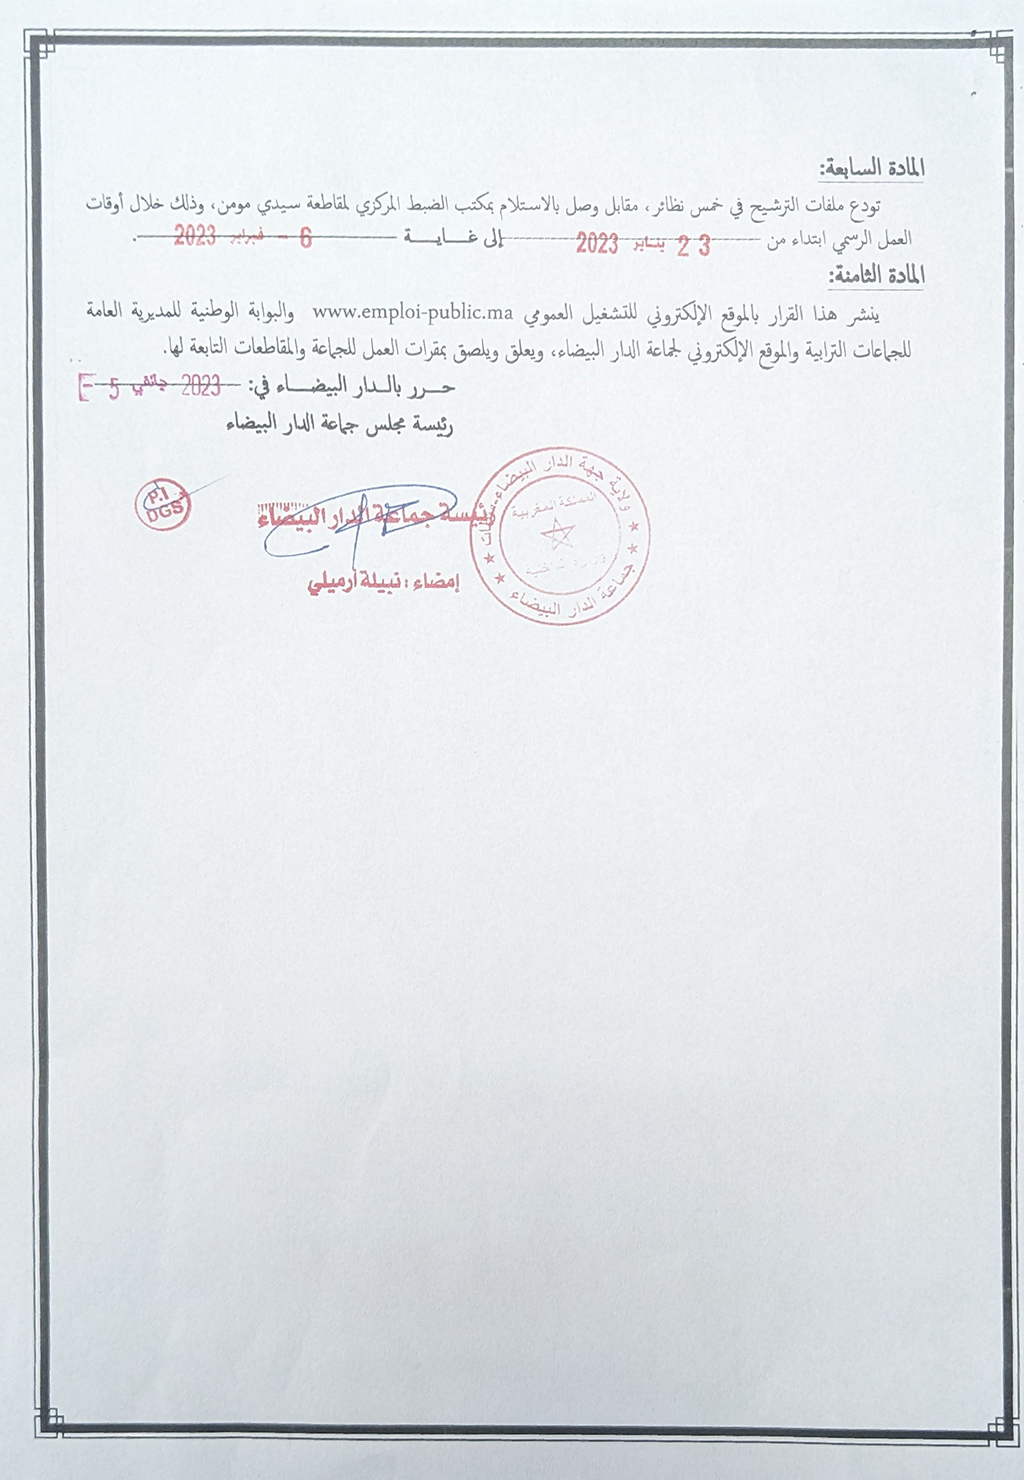 المادة السابعة:
تودع ملفات الترشيح في خمس نظائر، مقابل وصل بالاستلام بمكتب الضبط المركزي لمقاطعة سيدي مومن، وذلك خلال أوقات
العمل الرسمي ابتداء من 23 يناير 2023 إلى غـــايـــة 6 - فبراير 2023.
المادة الثامنة:
ينشر هذا القرار بالموقع الإلكتروني للتشغيل العمومي www.emploi-public.ma والبوابة الوطنية للمديرية العامة
للجماعات الترابية والموقع الإلكتروني لجماعة الدار البيضاء، ويعلق ويلصق بمقرات العمل للجماعة والمقاطعات التابعة لها.
حـــرر بالـدار البيضـــاء في: 5 جانفي 2023
رئيسة مجلس جماعة الدار البيضاء
رئيسة جماعة الدار البيضاء
إمضاء : نبيلة ارميلي
P.I
DGS
ولاية جهة الدار البيضاء-سطات
المملكة المغربية
جماعة الدار البيضاء